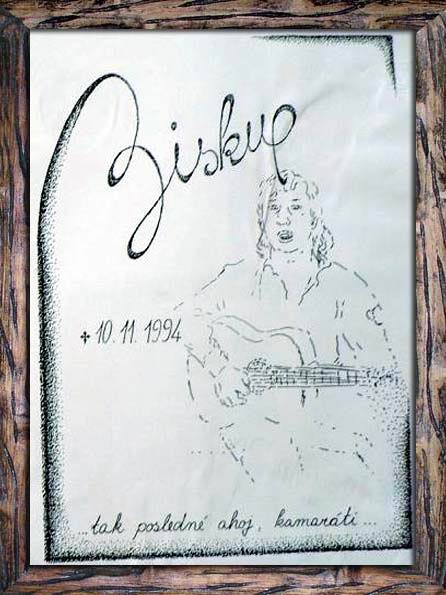 Biskup
✝ 10. 11. 1994
...tak posledné ahoj, kamaráti...